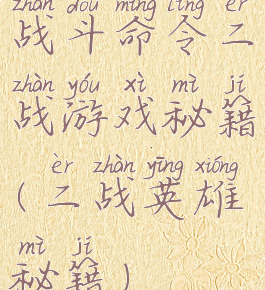 zhàn dòu mìng lìng èr
战斗命令二
zhàn yóu xì mì jí
战游戏秘籍
èr zhàn yīng xióng
(二战英雄
mì jí
秘籍)